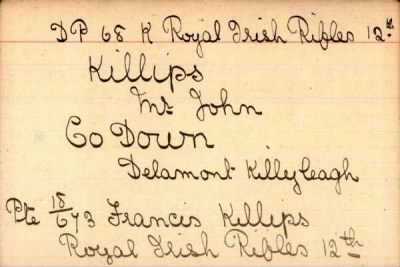 DP 68 K Royal Irish Rifles 12th
Killips
Mr John
Co Down
Delamont Killyleagh
Pte 18/673 Francis Killips
Royal Irish Rifles 12th